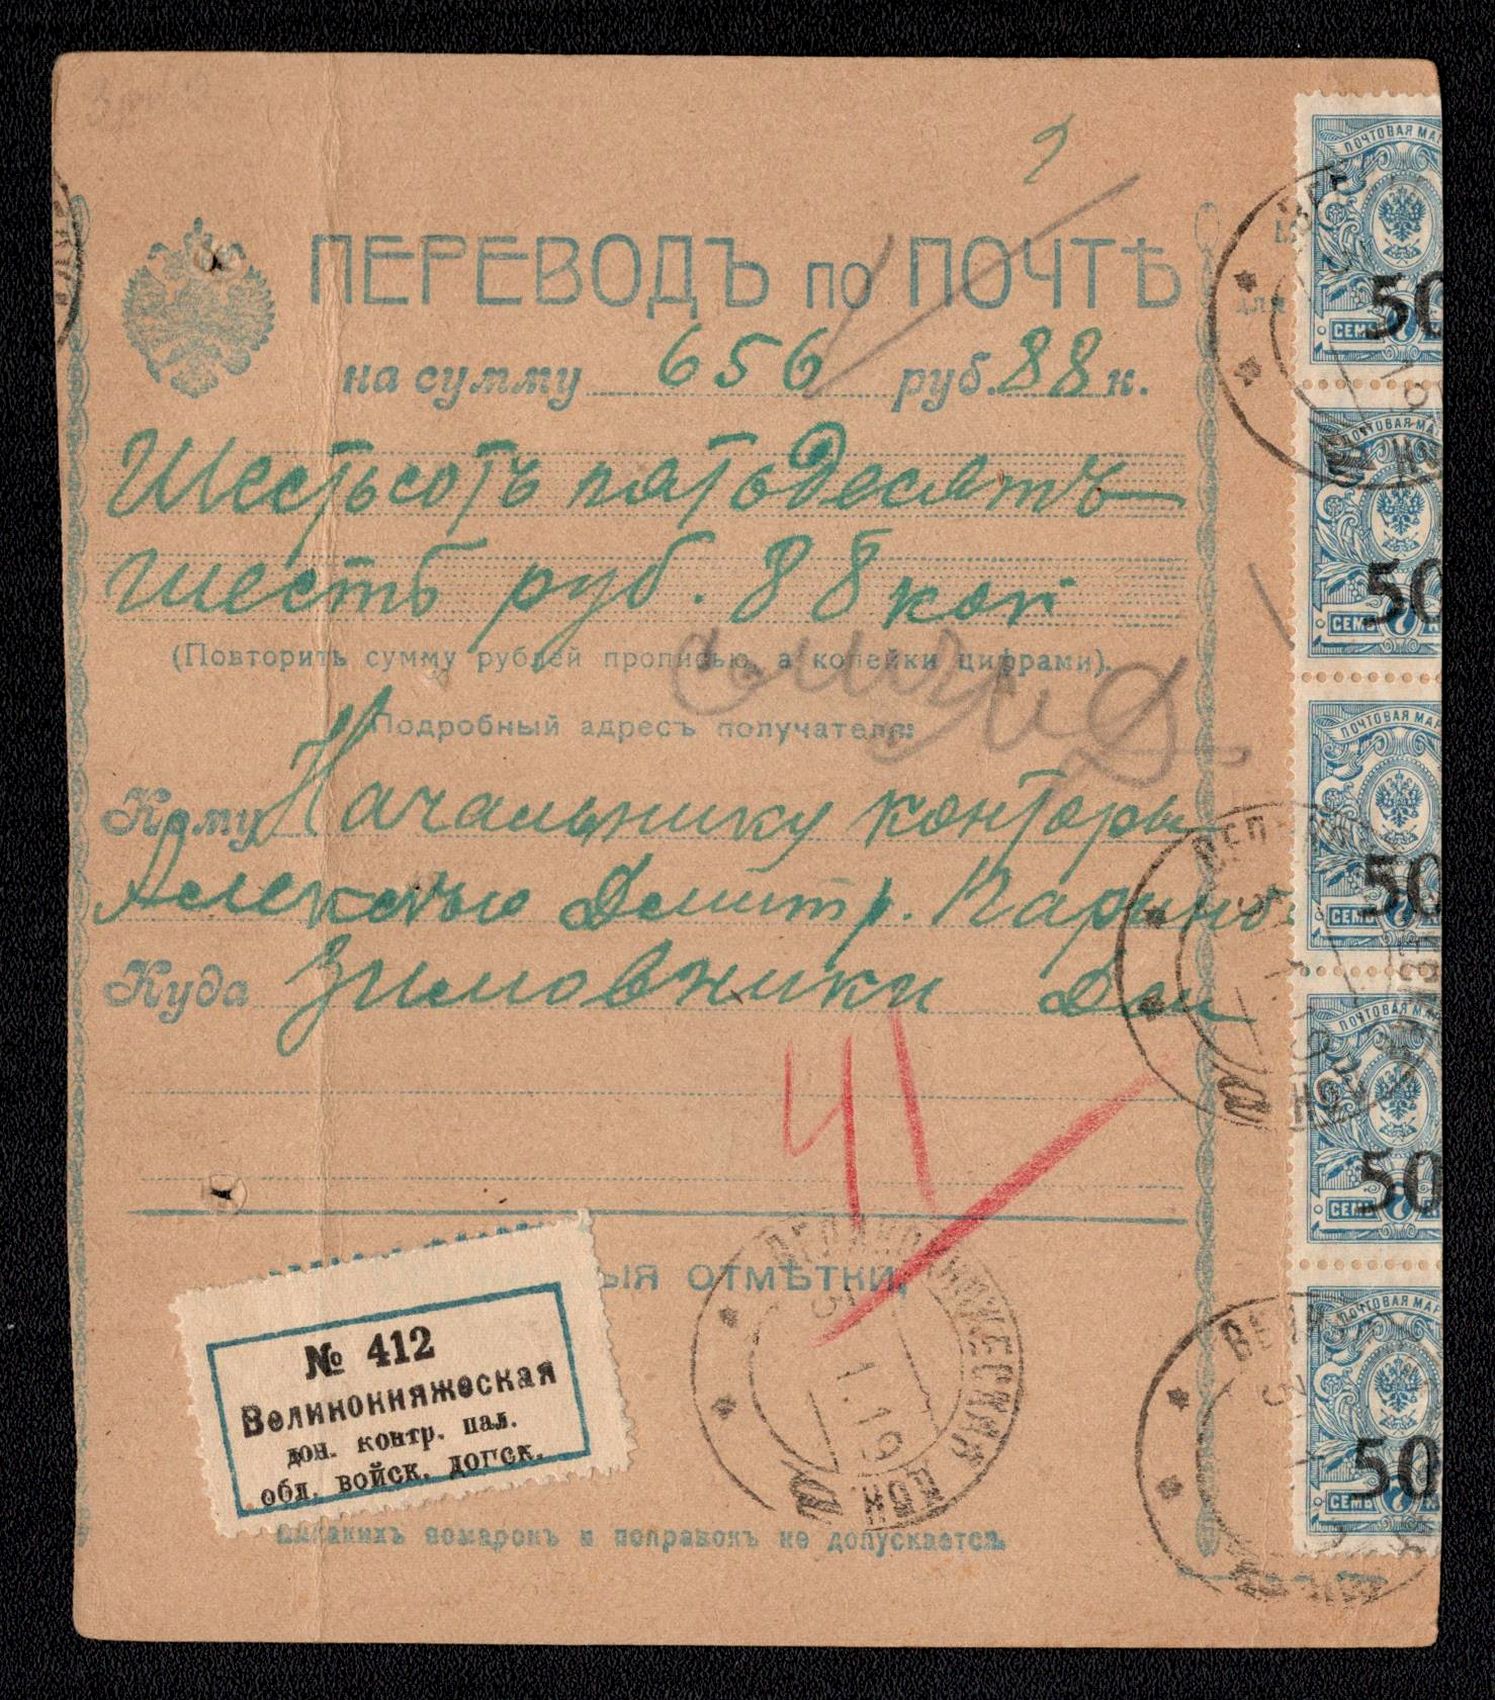 ПЕРЕВОДЪ по ПОЧТѢ
на сумму 656 руб. 88 к.
Шестьсотъ пятьдесятъ
шесть руб. 88 коп
(Повторить сумму рублей прописью, а копейки цифрами).
Подробный адресъ получателя:
Кому Начальнику конторы
Алексѣю Дмитр.
Куда Зимовники Дон
41
ЫЯ ОТМѢТКИ.
№ 412
Великокняжеская
дон. контр. пал.
обл. войск. донск.
Никакихъ помарокъ и поправокъ не допускается.
ВЕЛИКОКНЯЖЕСКАЯ
1.19
ПОЧТОВАЯ МАР
50
СЕМЬ 7 К
ПОЧТОВАЯ МАР
50
СЕМЬ 7 К
ПОЧТОВАЯ МАР
50
СЕМЬ 7 К
ПОЧТОВАЯ МАР
50
СЕМЬ 7 К
ПОЧТОВАЯ МАР
50
СЕМЬ 7 К